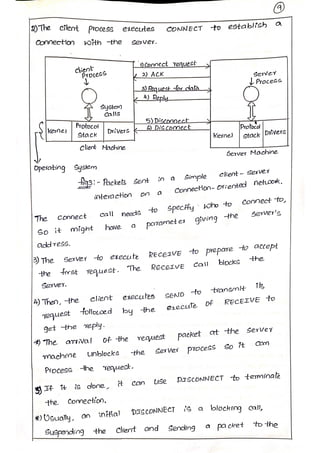 9
2) The client process executes CONNECT to establish a
connection with the server.
1) Connect request
client Process
2) ACK
Server Process
3) Request for data
4) Reply
System calls
5) Disconnect
6) Disconnect
Kernel
Protocol Stack
Drivers
Kernel
Protocol Stack
Drivers
Client Machine
Server Machine
Operating System
fig :- Packets sent in a simple client - server
interaction on a connection-oriented network.
The connect call needs to specify who to connect to,
so it might have a parameter giving the server's
address.
3) The server to execute RECEIVE to prepare to accept
the first request. The RECEIVE call blocks the
server.
4) Then, the client executes SEND to transmit its
request followed by the execute of RECEIVE to
get the reply.
The arrival of the request packet at the server
machine unblocks the server process so it can
process the request.
5) If it is done, it can use DISCONNECT to terminate
the connection.
Usually, an initial DISCONNECT is a blocking call,
suspending the client and sending a packet to the